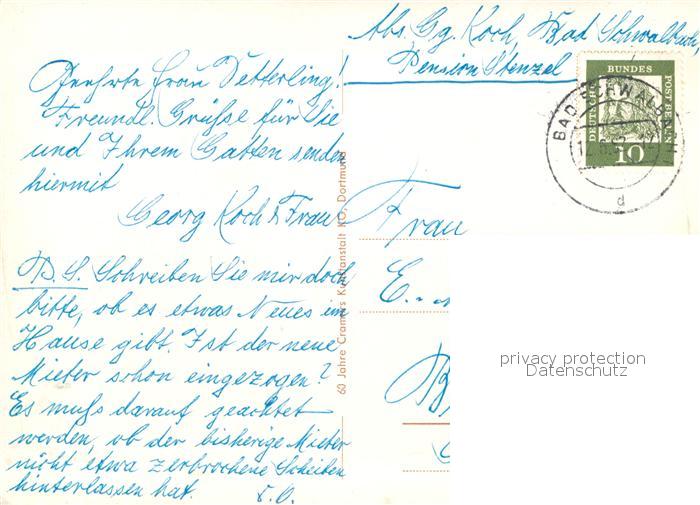 Abs. Gg. Koch, Bad Schwalbach,
Pension Stenzel
Geehrte Frau Detterling!
Freundl. Grüße für Sie
und Ihrem Gatten senden
hiermit
Georg Koch & Frau
P. S. Schreiben Sie mir doch
bitte, ob es etwas Neues im
Hause gibt. Ist der neue
Mieter schon eingezogen?
Es muß darauf geachtet
werden, ob der bisherige Mieter
nicht etwa zerbrochene Scheiben
hinterlassen hat.
60 Jahre Cramers Kunstanstalt KG, Dortmund
DEUTSCHE BUNDESPOST BERLIN
10
BAD SCHWALBACH
d
Frau
E.
privacy protection
Datenschutz